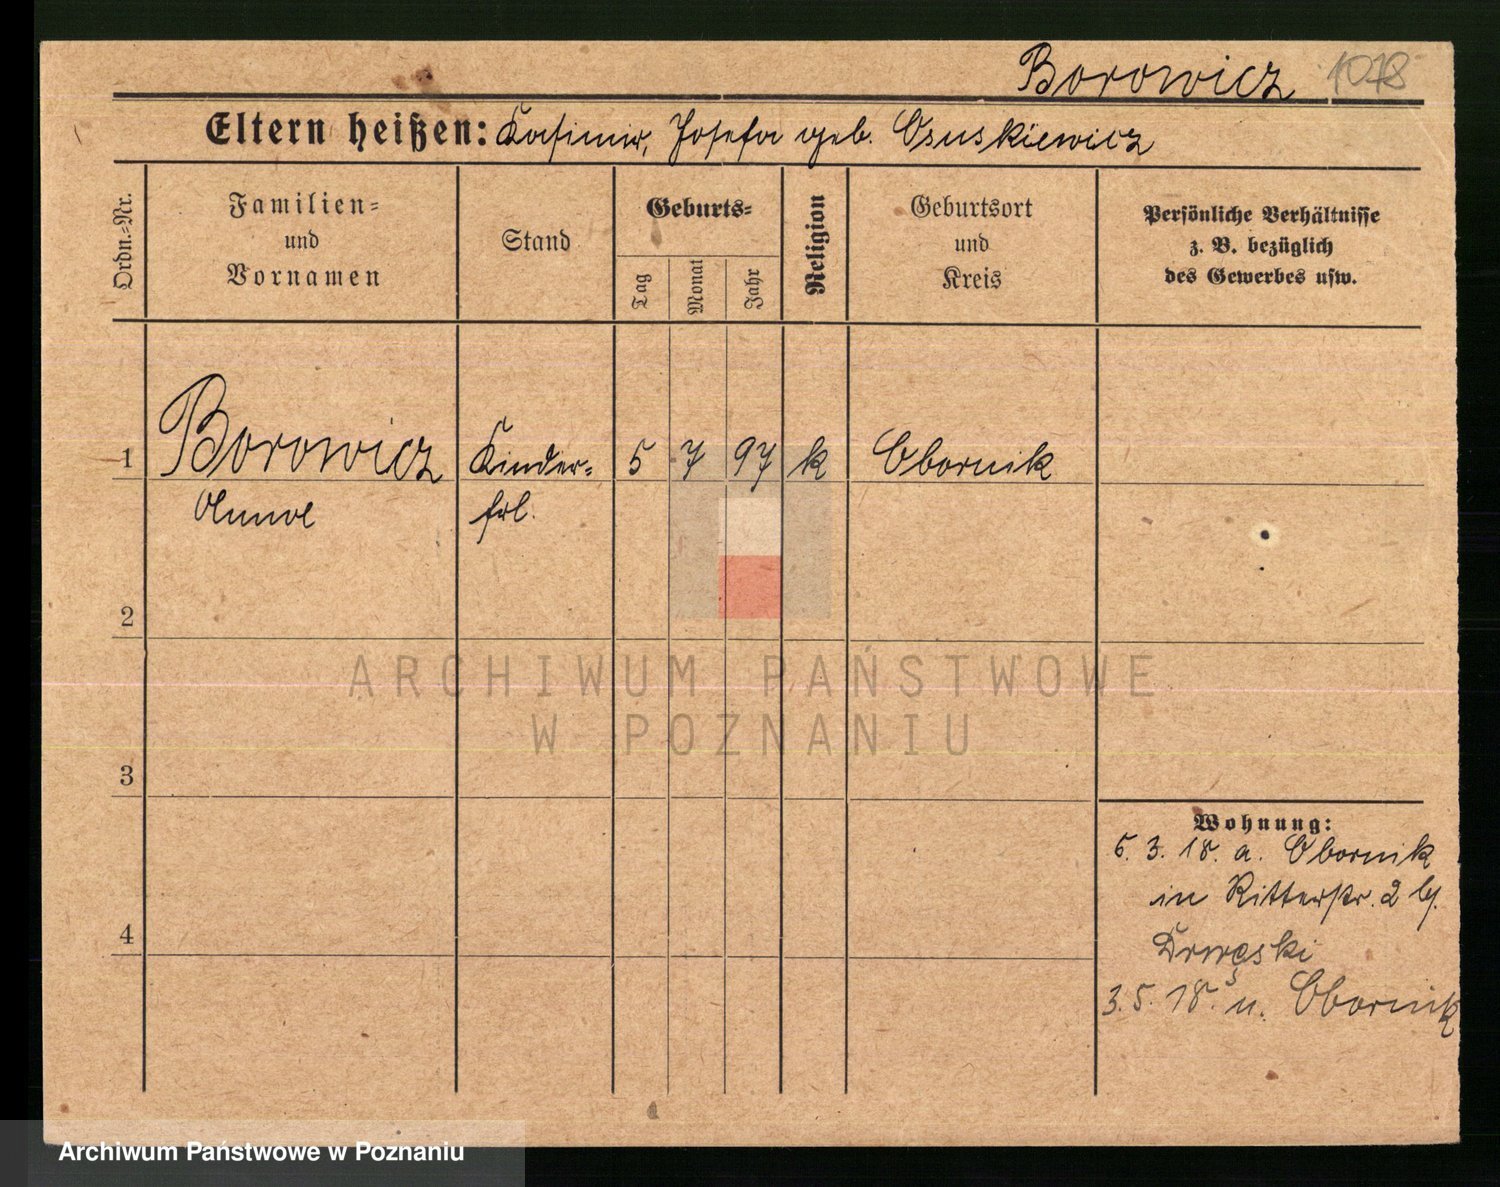 Borowicz 1078
Eltern heißen: Kasimir, Josefa geb. Osuskiewicz
Ordn.-Nr.
Familien- und Vornamen
Stand
Geburts-
Tag
Monat
Jahr
Religion
Geburtsort und Kreis
Persönliche Verhältnisse
z. B. bezüglich
des Gewerbes usw.
1 Borowicz Kinder- 5 7 97 k Obornik
frl.
2
ARCHIWUM PAŃSTWOWE
W POZNANIU
3
Wohnung:
5. 3. 18. a. Obornik
in Ritterstr. 2 bj.
4
Drwęski
3. 5. 18. n. Obornik
Archiwum Państwowe w Poznaniu